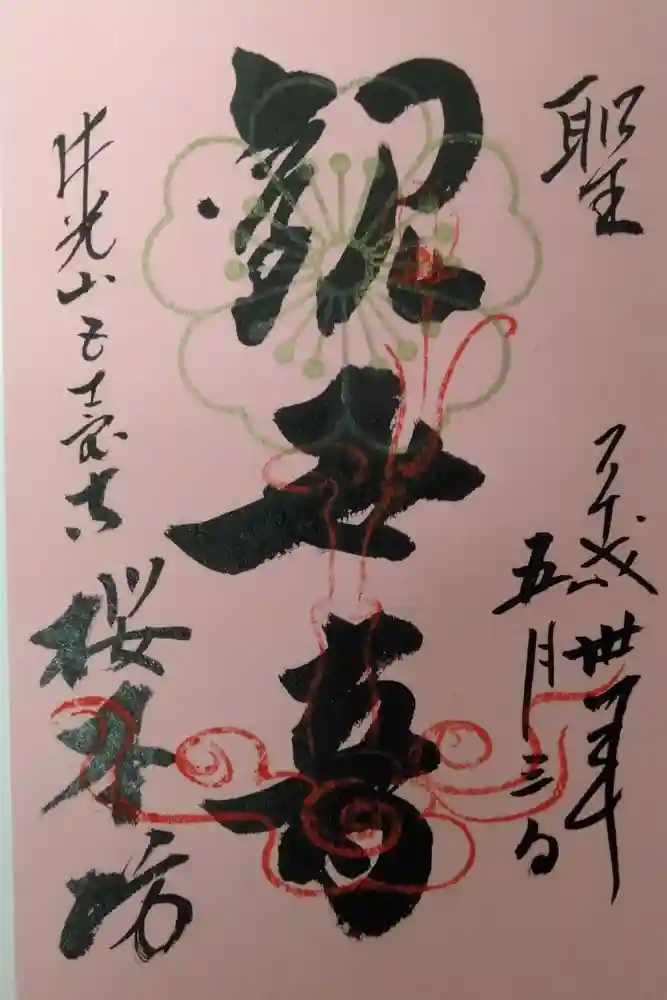 聖
観世音
平成卅年
五月三日
井光山五臺寺
桜本坊